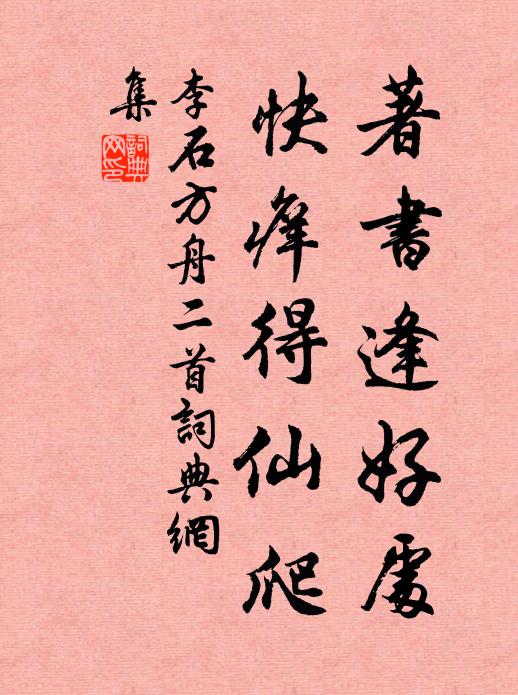 著書逢好處
快痒得仙爬
李石方舟二首詞典網
集
詞典網印